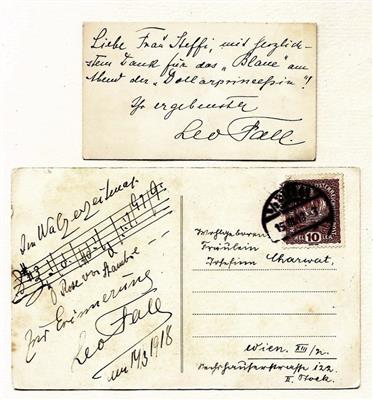 Liebe Frau Steffi, mit herzlich-
stem Dank für das „Blaue“ am
Abend der „Dollarprincessin“!
Ihr ergebenster
Leo Fall.
Im Walzerzeitmass
Rose von Stambul
Zur Erinnerung
Leo Fall
1918
10
Wohlgeboren
Fräulein
Josefine Charwat.
Wien XIII/2.
Sechshauserstrasse 122.
II. Stock.